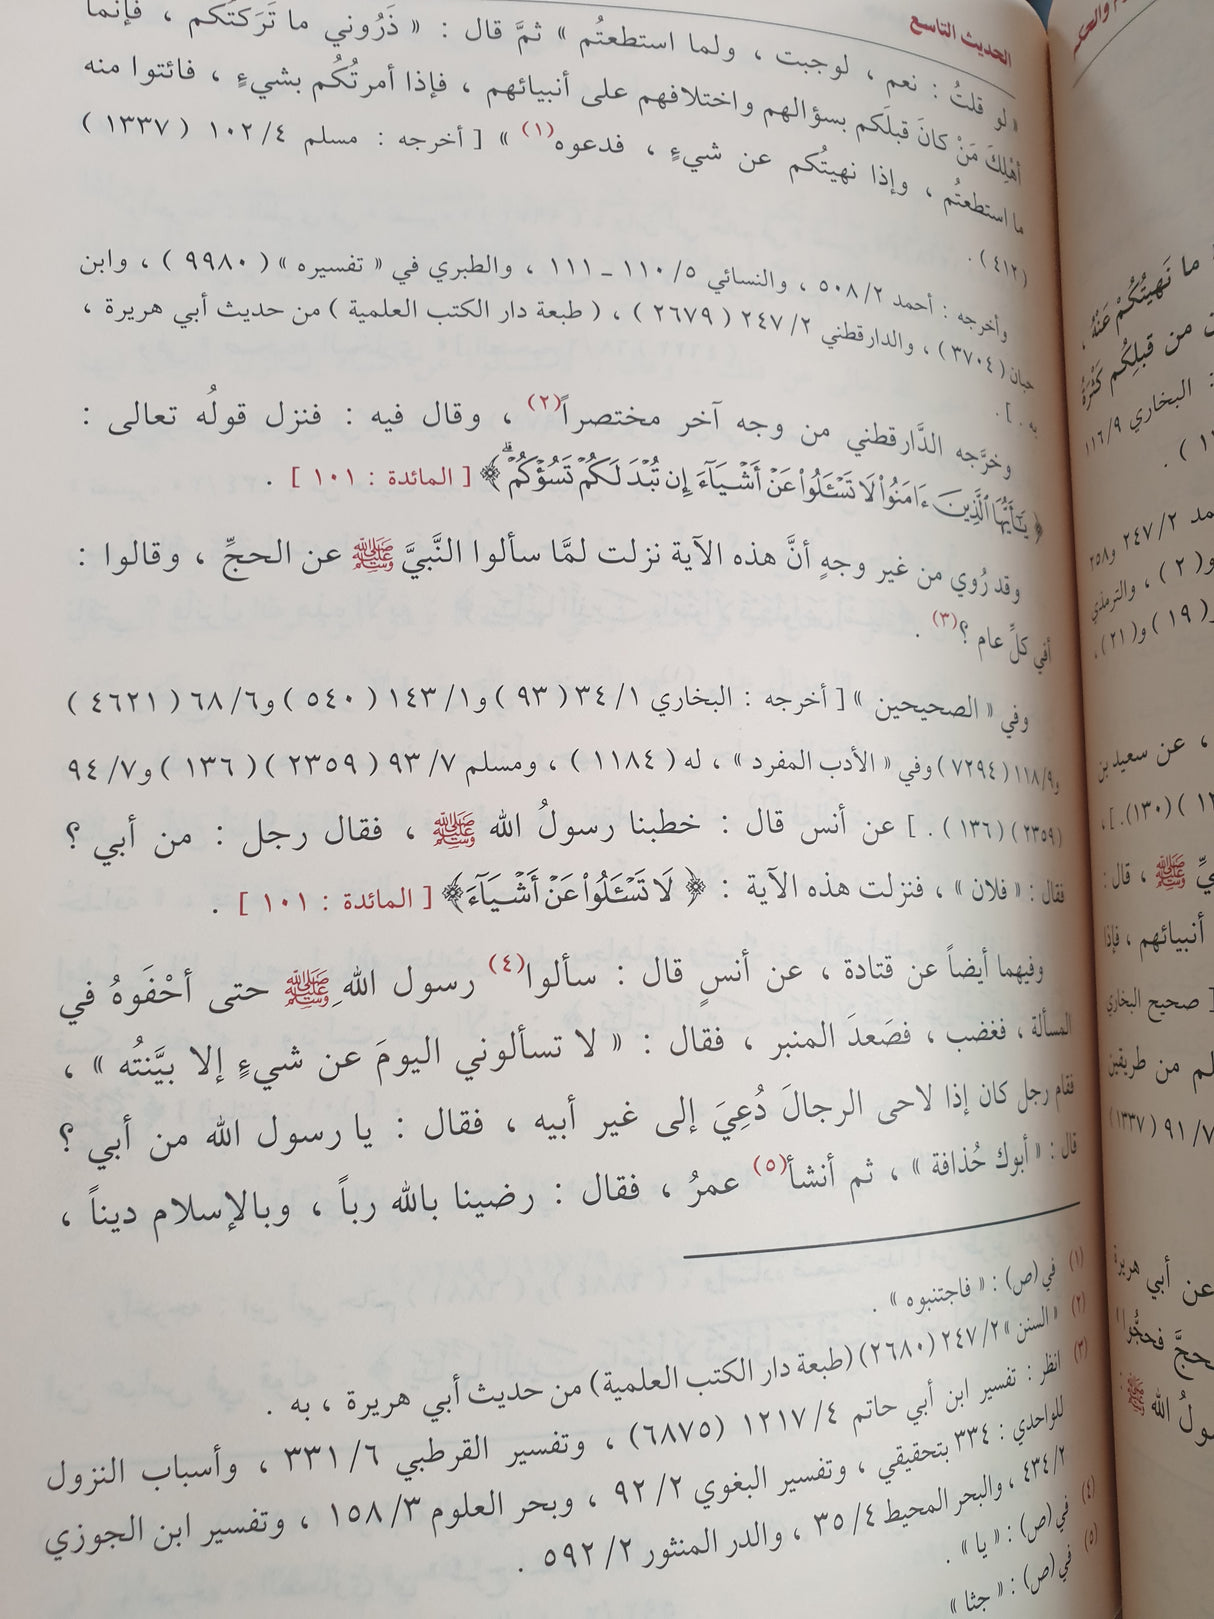 الحديث التاسع
« لو قلتُ : نعم ، لوجبت ، ولما استطعتُم » ثمَّ قال : « ذَرُوني ما تَرَكتُكم ، فإنَّما
أهْلِكَ مَنْ كانَ قبلَكم بسؤالهم واختلافهم على أنبيائهم ، فإذا أمرتُكُم بشيءٍ ، فائتوا منه
ما استطعتُم ، وإذا نهيتُكم عن شيءٍ ، فدعوه(١) » [ أخرجه : مسلم ٤/ ١٠٢ ( ١٣٣٧ )
( ٤١٢ ) .
وأخرجه : أحمد ٢/ ٥٠٨ ، والنسائي ٥/ ١١٠ ـ ١١١ ، والطبري في « تفسيره » ( ٩٩٨٠ ) ، وابن
حبان ( ٣٧٠٤ ) ، والدارقطني ٢/ ٢٤٧ ( ٢٦٧٩ ) ، ( طبعة دار الكتب العلمية ) من حديث أبي هريرة ،
به . ] .
وخرَّجه الدَّارقطني من وجه آخر مختصراً(٢) ، وقال فيه : فنزل قولُه تعالى :
﴿ يَٰٓأَيُّهَا ٱلَّذِينَ ءَامَنُواْ لَا تَسْـَٔلُواْ عَنْ أَشْيَآءَ إِن تُبْدَ لَكُمْ تَسُؤْكُمْ ﴾ [ المائدة : ١٠١ ] .
وقد رُوي من غير وجهٍ أنَّ هذه الآية نزلت لمَّا سألوا النَّبيَّ ﷺ عن الحجِّ ، وقالوا :
أفي كلِّ عام ؟(٣) .
وفي « الصحيحين » [ أخرجه : البخاري ١/ ٣٤ ( ٩٣ ) و١/ ١٤٣ ( ٥٤٠ ) و٦/ ٦٨ ( ٤٦٢١ )
و٩/ ١١٨ ( ٧٢٩٤ ) وفي « الأدب المفرد » ، له ( ١١٨٤ ) ، ومسلم ٧/ ٩٣ ( ٢٣٥٩ ) ( ١٣٦ ) و٧/ ٩٤
( ٢٣٥٩ ) ( ١٣٦ ) . ] عن أنس قال : خطبنا رسولُ الله ﷺ ، فقال رجل : من أبي ؟
فقال : « فلان » ، فنزلت هذه الآية : ﴿ لَا تَسْـَٔلُواْ عَنْ أَشْيَآءَ ﴾ [ المائدة : ١٠١ ] .
وفيهما أيضاً عن قتادة ، عن أنسٍ قال : سألوا(٤) رسول اللهِ ﷺ حتى أحْفَوهُ في
المسألة ، فغضب ، فصَعدَ المنبر ، فقال : « لا تسألوني اليومَ عن شيءٍ إلا بيَّنتُه » ،
فقام رجل كان إذا لاحى الرجالَ دُعِيَ إلى غير أبيه ، فقال : يا رسول الله من أبي ؟
قال : « أبوك حُذافة » ، ثم أنشأ(٥) عمرُ ، فقال : رضينا بالله رباً ، وبالإسلام ديناً ،
(١) في (ص) : « فاجتنبوه » .
(٢) « السنن » ٢/ ٢٤٧ (٢٦٨٠) (طبعة دار الكتب العلمية) من حديث أبي هريرة ، به .
(٣) انظر : تفسير ابن أبي حاتم ٤/ ١٢١٧ (٦٨٧٥) ، وتفسير القرطبي ٦/ ٣٣١ ، وأسباب النزول
للواحدي : ٣٣٤ بتحقيقي ، وتفسير البغوي ٢/ ٩٢ ، وبحر العلوم ٣/ ١٥٨ ، وتفسير ابن الجوزي
٢/ ٤٣٤ ، والبحر المحيط ٤/ ٣٥ ، والدر المنثور ٢/ ٥٩٢ .
(٤) في (ص) : « يا » .
(٥) في (ص) : « جثا »
والحكم
ما نَهيتُكُمْ عَنْهُ ،
من قبلِكُم كَثْرَةُ
: البخاري ٩/ ١١٦
٢/ ٢٤٧ و٢٥٨
و( ٢ ) ، والترمذي
( ١٩ ) و( ٢١ ) ،
، عن سعيد بن
( ١٣٠ ) . ] ،
ﷺ ، قال :
أنبيائهم ، فإذا
[ صحيح البخاري
من طريقين
٧/ ٩١ ( ١٣٣٧ )
عن أبي هريرة
فحجُّوا
الله ﷺ :